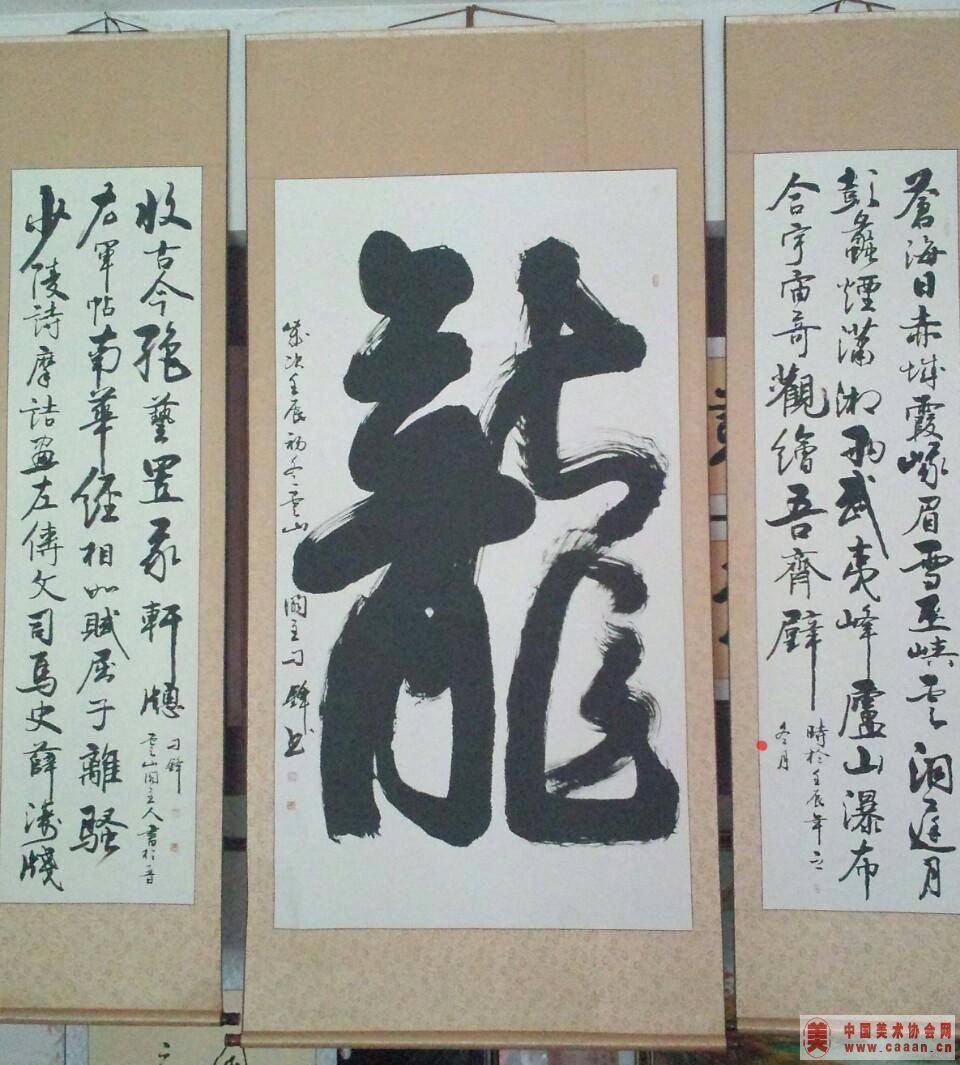 蒼海日赤城霞峨眉雪巫峽雲洞庭月
彭蠡煙瀟湘雨武夷峰廬山瀑布
合宇宙奇觀繪吾齋壁
時於壬辰年之
冬月
龍
歲次壬辰初冬雲山閣主刁鋒書
少陵詩摩詰畫左傳文司馬史薛濤牋
右軍帖南華經相如賦屈子離騷
收古今絕藝置我軒牕
雲山閣主人書於晉
刁鋒
中国美术协会网
www.caaan.cn